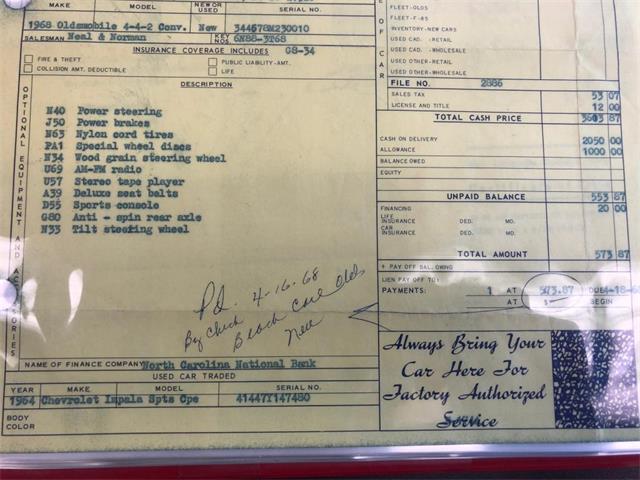 MAKE MODEL NEW OR USED SERIAL NO.
1968 Oldsmobile 4-4-2 Conv. New 344678M230010
SALESMAN Neal & Norman KEY NOS 6N88-3T68
INSURANCE COVERAGE INCLUDES G8-34
FIRE & THEFT PUBLIC LIABILITY-AMT.
COLLISION AMT. DEDUCTIBLE LIFE
DESCRIPTION
OPTIONAL EQUIPMENT AND ACCESSORIES
N40 Power steering
J50 Power brakes
N63 Nylon cord tires
PA1 Special wheel discs
N34 Wood grain steering wheel
U69 AM-FM radio
U57 Stereo tape player
A39 Deluxe seat belts
D55 Sports console
G80 Anti - spin rear axle
N33 Tilt steering wheel
Pd. 4-16-68
By Check Beach Olds
NAME OF FINANCE COMPANY North Carolina National Bank
USED CAR TRADED
YEAR MAKE MODEL SERIAL NO.
1964 Chevrolet Impala Spts Cpe 41447Y147480
BODY COLOR
E OF CAR
FLEET-OLDS
FLEET-F-85
INVENTORY-NEW CARS
USED CAD. -RETAIL
USED CAD. -WHOLESALE
USED OTHER-RETAIL
USED OTHER-WHOLESALE
FILE NO. 2886
SALES TAX 53 07
LICENSE AND TITLE 12 00
TOTAL CASH PRICE 3603 87
CASH ON DELIVERY 2050 00
ALLOWANCE 1000 00
BALANCE OWED
EQUITY
UNPAID BALANCE 553 87
FINANCING 20 00
LIFE INSURANCE DED. MO.
CAR INSURANCE DED. MO.
TOTAL AMOUNT 573 87
* PAY OFF BAL. OWING
LIEN PAY OFF TO:
PAYMENTS: 1 AT 573.87 DUE 4-18-6
AT $ BEGIN
Always Bring Your
Car Here For
Factory Authorized
Service